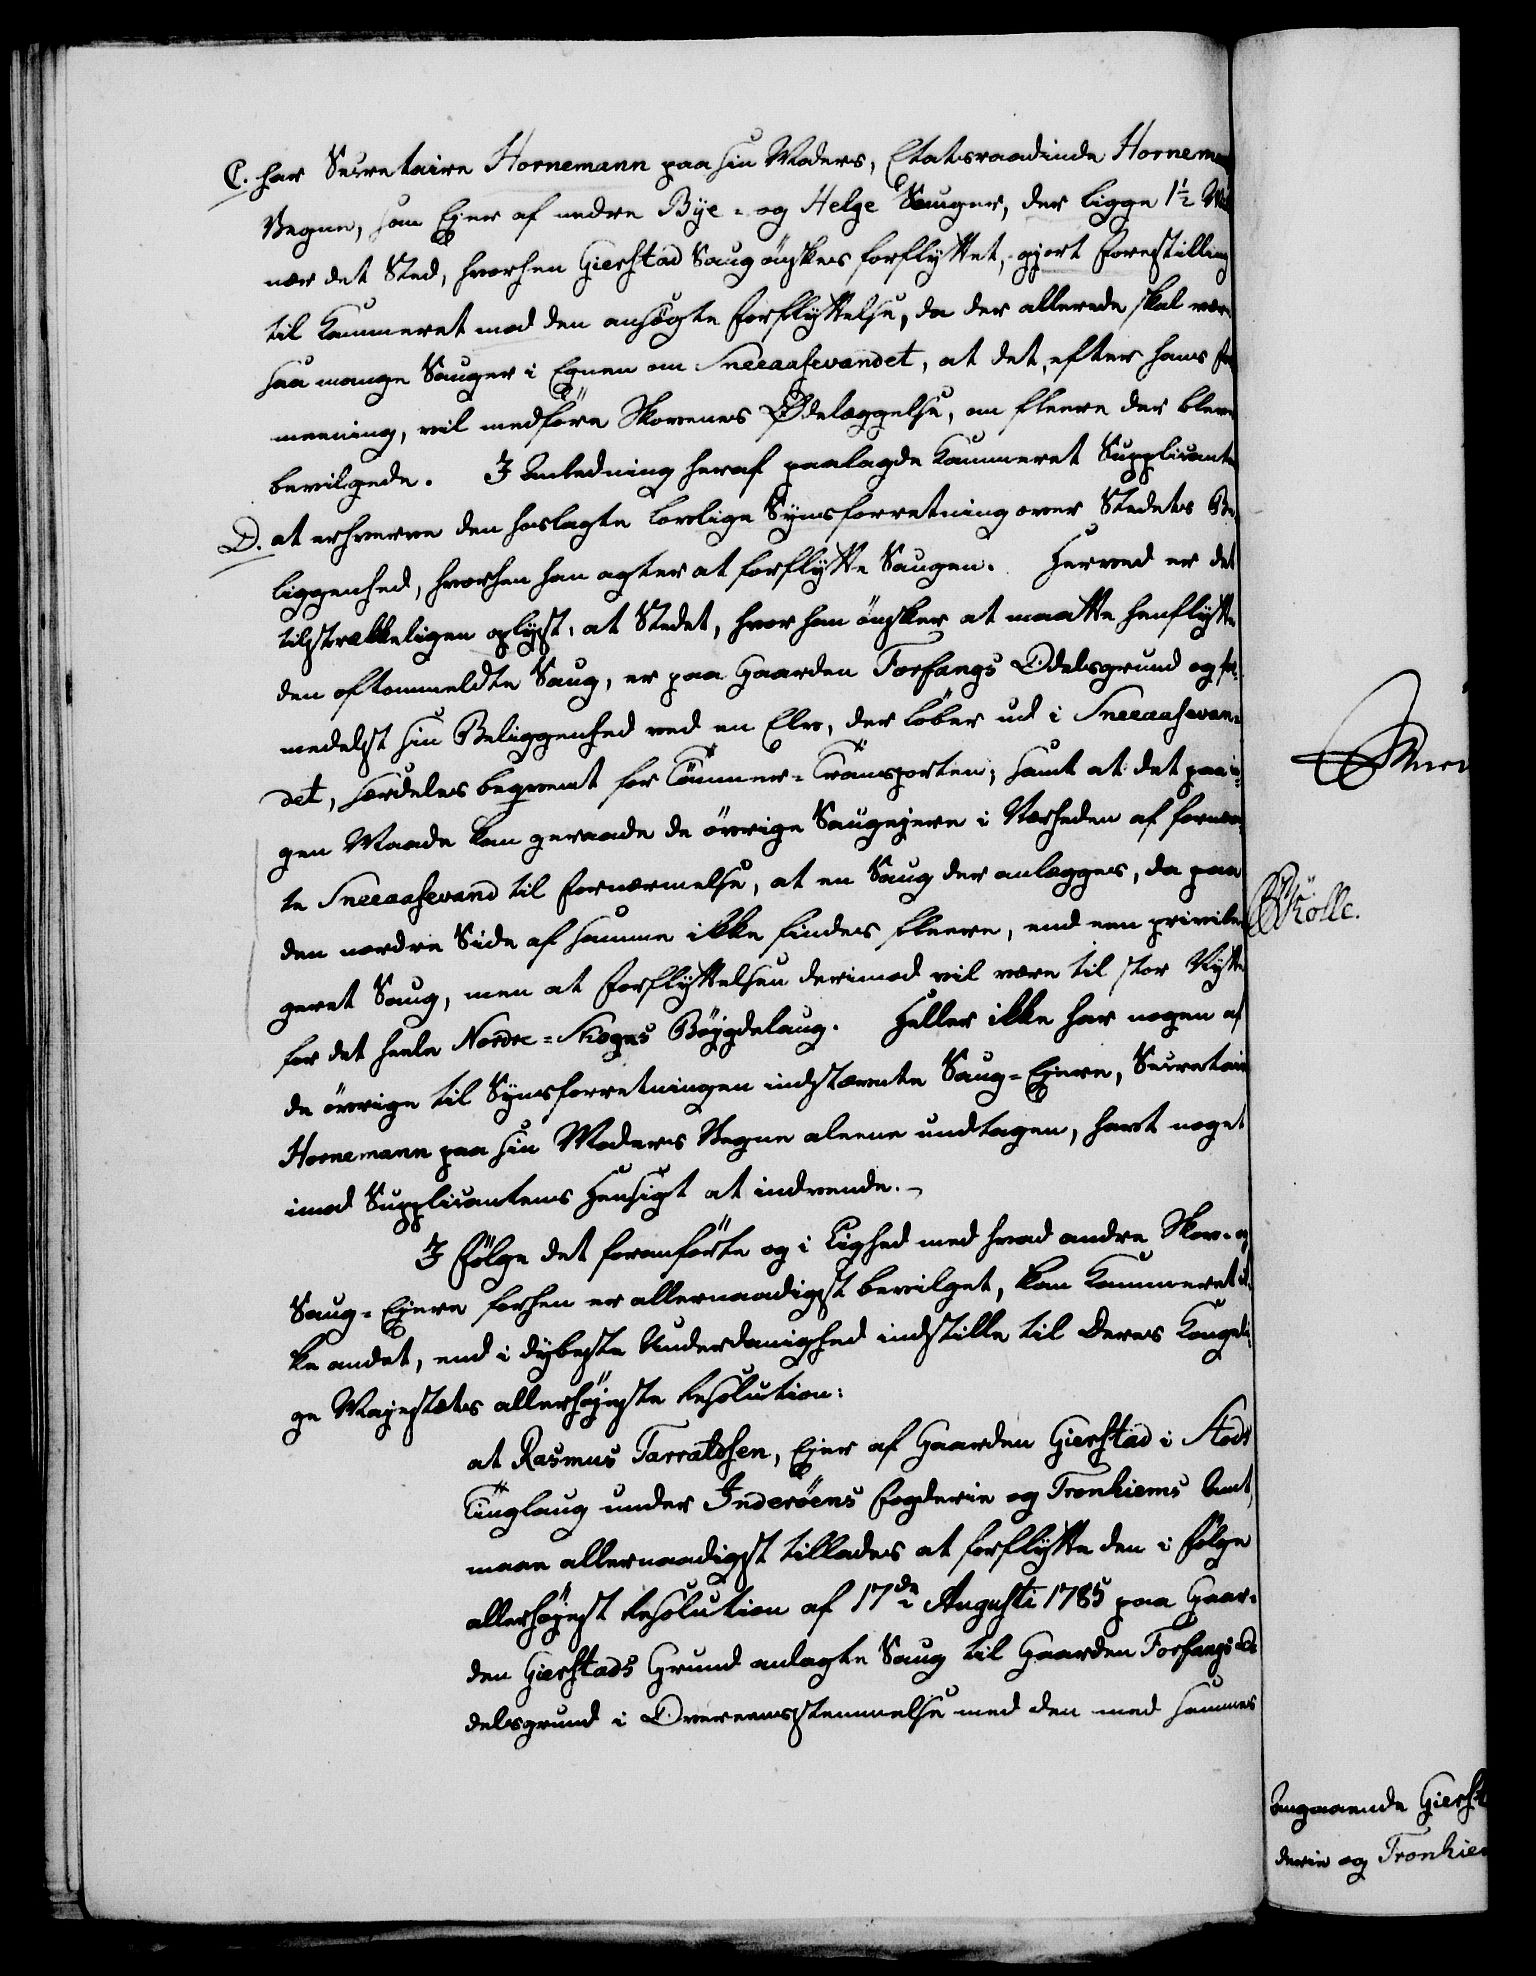 C. har Secretaire Hornemann paa sin Moders, Etatsraadinde Hornemann
Vegne, som Ejer af nedre Bye- og Helge Sauger, der ligge 1½ Mil
nær det Sted, hvorhen Gierstad Saug önskes forflyttet, gjort Forestilling
til Kammeret mod den ansögte Forflyttelse, da der allerede skal være
saa mange Sauger i Egnen om Sneeaasevandet, at det, efter hans For
meening, vil medföre Skovenes Ödelæggelse, om fleere der bleve
bevilgede. I Anledning heraf paalagde Kammeret Supplicanten
D. at erhverve den hoslagte lovlige Synsforretning over Stedets Be-
liggenhed, hvorhen han agter at forflytte Saugen. Herved er det
tilstrækkeligen oplyst, at Stedet, hvor han önsker at maatte henflytte
den oftommeldte Saug, er paa Gaarden Forfangs Odelsgrund og for-
medelst sin Beliggenhed ved en Elv, der löber ud i Sneeaasevan-
det, særdeles beqvemt for Tömmer-Transporten; samt at det paa in-
gen Maade kan geraade de övrige Saugejere i Nærheden af fornævn
te Sneeaasevand til Fornærmelse, at en Saug der anlægges, da paa
den nordre Side af samme ikke findes fleere, end een privile
geret Saug, men at Forflyttelsen derimod vil være til stor Nytte
for det heele Nordre-Skogns Böygdelaug. Heller ikke har nogen af
de övrige til Synsforretningen indstævnte Saug-Ejere, Secretaire
Hornemann paa sin Moders Vegne aleene undtagen, havt noget
imod Supplicantens Hensigt at indvende.
I Fölge det foranförte og i Lighed med hvad andre Skov- og
Saug-Ejere forhen er allernaadigst bevilget, kan Kammeret ik-
ke andet, end i dybeste Underdanighed indstille til Deres Kongeli-
ge Majestæts allerhöjeste Resolution:
at Rasmus Tarraldsen, Ejer af Gaarden Gierstad i Stods
Tinglaug under Inderöens Fogderie og Tronhiems Amt,
maae allernaadigst tillades at forflytte den i Fölge
allerhöjest Resolution af 17de Augusti 1785 paa Gaar-
den Gierstads Grund anlagte Saug til Gaarden Forfangs O-
delsgrund i Overeensstemmelse med den med sammes
Kölle.
Angaaende Gierst
derie og Tronhie